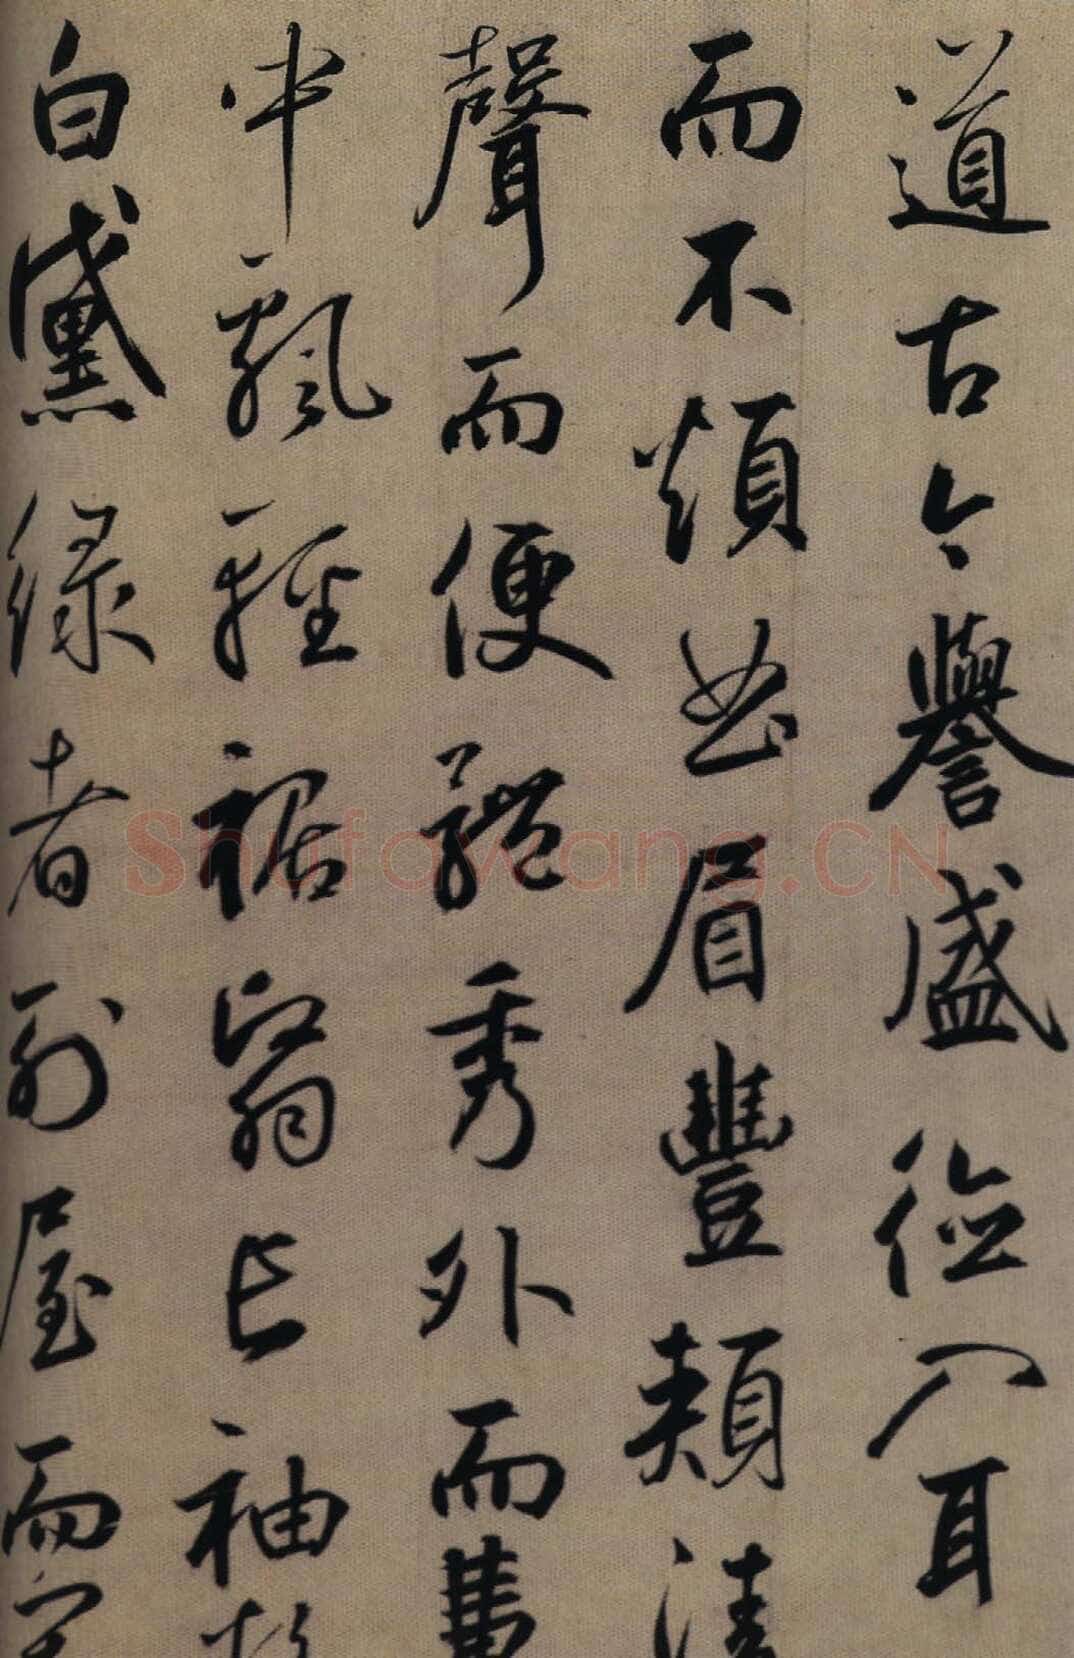 道古今譽盛德入耳
而不煩曲眉豐頰清
聲而便體秀外而惠
中飄輕裾翳長袖粉
白黛綠者列屋而
Shufawang.CN